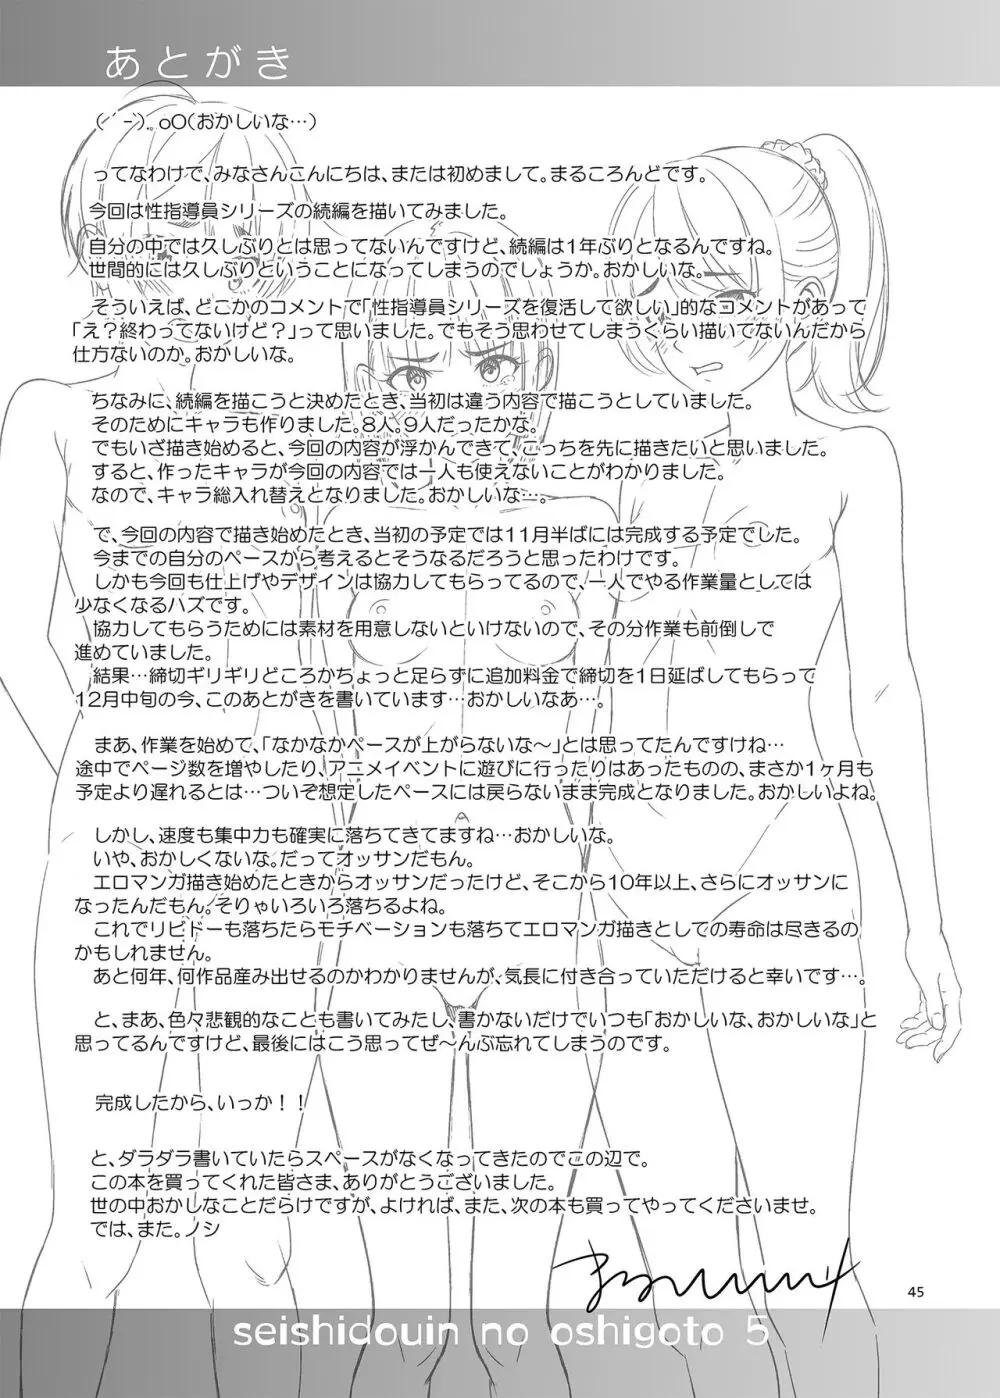 あとがき
(´-)。oO(おかしいな…)
ってなわけで、みなさんこんにちは、または初めまして。まるころんどです。
今回は性指導員シリーズの続編を描いてみました。
自分の中では久しぶりとは思ってないんですけど、続編は1年ぶりとなるんですね。
世間的には久しぶりということになってしまうのでしょうか。おかしいな。
そういえば、どこかのコメントで「性指導員シリーズを復活して欲しい」的なコメントがあって
「え？終わってないけど？」って思いました。でもそう思わせてしまうくらい描いてないんだから
仕方ないのか。おかしいな。
ちなみに、続編を描こうと決めたとき、当初は違う内容で描こうとしていました。
そのためにキャラも作りました。8人。9人だったかな。
でもいざ描き始めると、今回の内容が浮かんできて、こっちを先に描きたいと思いました。
すると、作ったキャラが今回の内容では一人も使えないことがわかりました。
なので、キャラ総入れ替えとなりました。おかしいな…。
で、今回の内容で描き始めたとき、当初の予定では11月半ばには完成する予定でした。
今までの自分のペースから考えるとそうなるだろうと思ったわけです。
しかも今回も仕上げやデザインは協力してもらってるので、一人でやる作業量としては
少なくなるハズです。
協力してもらうためには素材を用意しないといけないので、その分作業も前倒しで
進めていました。
結果…締切ギリギリどころかちょっと足らずに追加料金で締切を1日延ばしてもらって
12月中旬の今、このあとがきを書いています…おかしいなあ…。
まあ、作業を始めて、「なかなかペースが上がらないな～」とは思ってたんですけね…
途中でページ数を増やしたり、アニメイベントに遊びに行ったりはあったものの、まさか1ヶ月も
予定より遅れるとは…ついぞ想定したペースには戻らないまま完成となりました。おかしいよね。
しかし、速度も集中力も確実に落ちてきてますね…おかしいな。
いや、おかしくないな。だってオッサンだもん。
エロマンガ描き始めたときからオッサンだったけど、そこから10年以上、さらにオッサンに
なったんだもん。そりゃいろいろ落ちるよね。
これでリビドーも落ちたらモチベーションも落ちてエロマンガ描きとしての寿命は尽きるの
かもしれません。
あと何年、何作品産み出せるのかわかりませんが、気長に付き合っていただけると幸いです…。
と、まあ、色々悲観的なことも書いてみたし、書かないだけでいつも「おかしいな、おかしいな」と
思ってるんですけど、最後にはこう思ってぜ～んぶ忘れてしまうのです。
完成したから、いっか！！
と、ダラダラ書いていたらスペースがなくなってきたのでこの辺で。
この本を買ってくれた皆さま、ありがとうございました。
世の中おかしなことだらけですが、よければ、また、次の本も買ってやってくださいませ。
では、また。ノシ
45
seishidouin no oshigoto 5